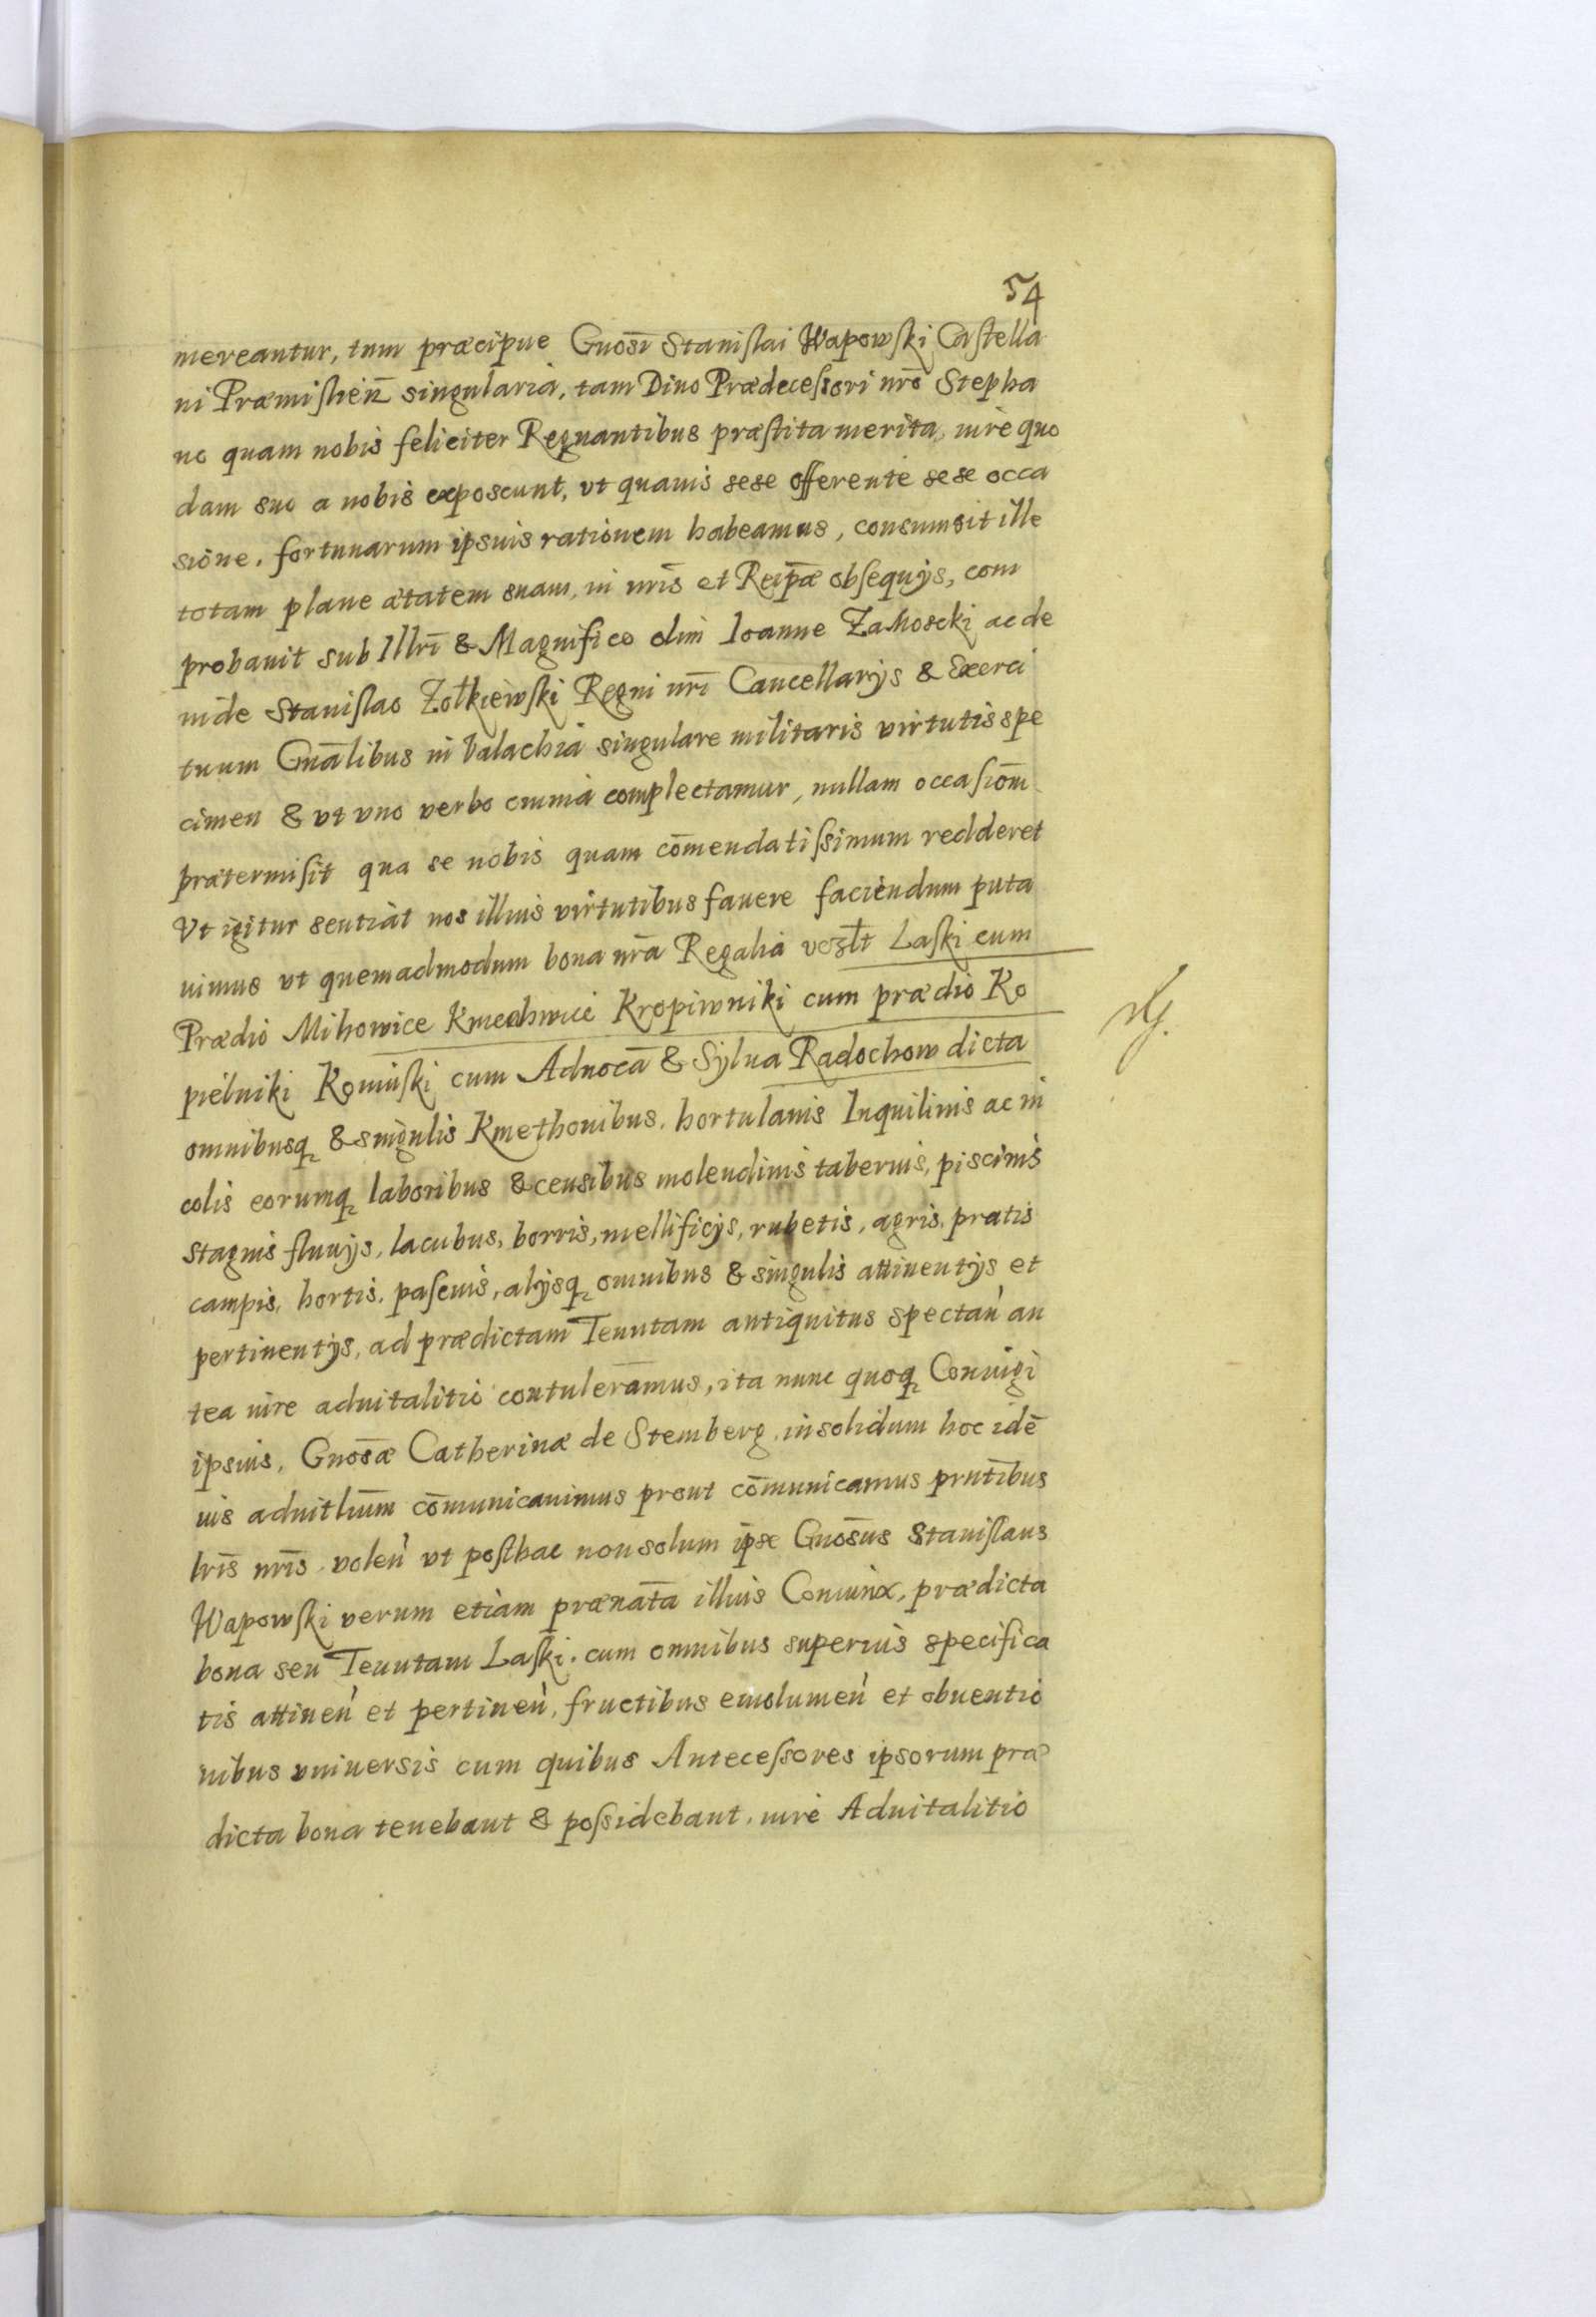 54
mereantur, tum præcipue Gnosi Stanislai Wapowski Castella
ni Præmislien̄ singularia, tam Diuo Prædecessori nrō Stepha
no quam nobis feliciter Regnantibus præstita merita, iure quo
dam suo a nobis exposcunt, vt quauis sese offerente sese occa
sione, fortunarum ipsius rationem habeamus, consumsit ille
totam plane ætatem suam, in nrīs et Reipǣ obsequÿs, com
probauit sub Illrī & Magnifico olim Ioanne Zamoscki ac de
inde Stanislao Zołkiewski Regni nrī Cancellarÿs & Exerci
tuum Gnālibus in Valachia singulare militaris virtutis spe
cimen & vt vno verbo omnia complectamur, nullam occasiōm
prætermisit qua se nobis quam cōmendatissimum redderet
Vt igitur sentiat nos illius virtutibus fauere faciendum puta
uimus vt quemadmodum bona nrā Regalia vczłt Laski cum
Prædio Mihowice Kmechwici Kropiwniki cum prædio Ko
pielniki Koniuski cum Aduocā & Sylua Radochow dicta
omnibusq & singulis Kmethonibus, hortulanis Inquilinis ac in
colis eorumq laboribus & censibus molendinis tabernis, piscinis
stagnis fluuÿs, lacubus, borris, mellificÿs, rubetis, agris, pratis
campis, hortis, pascuis, alÿsq omnibus & singulis attinentÿs et
pertinentÿs, ad prædictam Tenutam antiquitus spectan̄ an
tea iure aduitalitio contulerāmus, ita nunc quoq Coniugi
ipsius, Gnosǣ Catherinæ de Stemberg, insolidum hoc idē
ius aduitliūm cōmunicauimus prout cōmunicamus prntībus
lrīs nrīs, volen̄ vt posthac non solum ipse Gnosūs Stanislaus
Wapowski verum etiam prænatā illius Coniunx, prædicta
bona seu Tenutam Laski, cum omnibus superius specifica
tis attinen̄ et pertinen̄, fructibus emolumen̄ et obuentio
nibus vniuersis cum quibus Antecessores ipsorum præ
dicta bona tenebant & possidebant, iure Aduitalitio